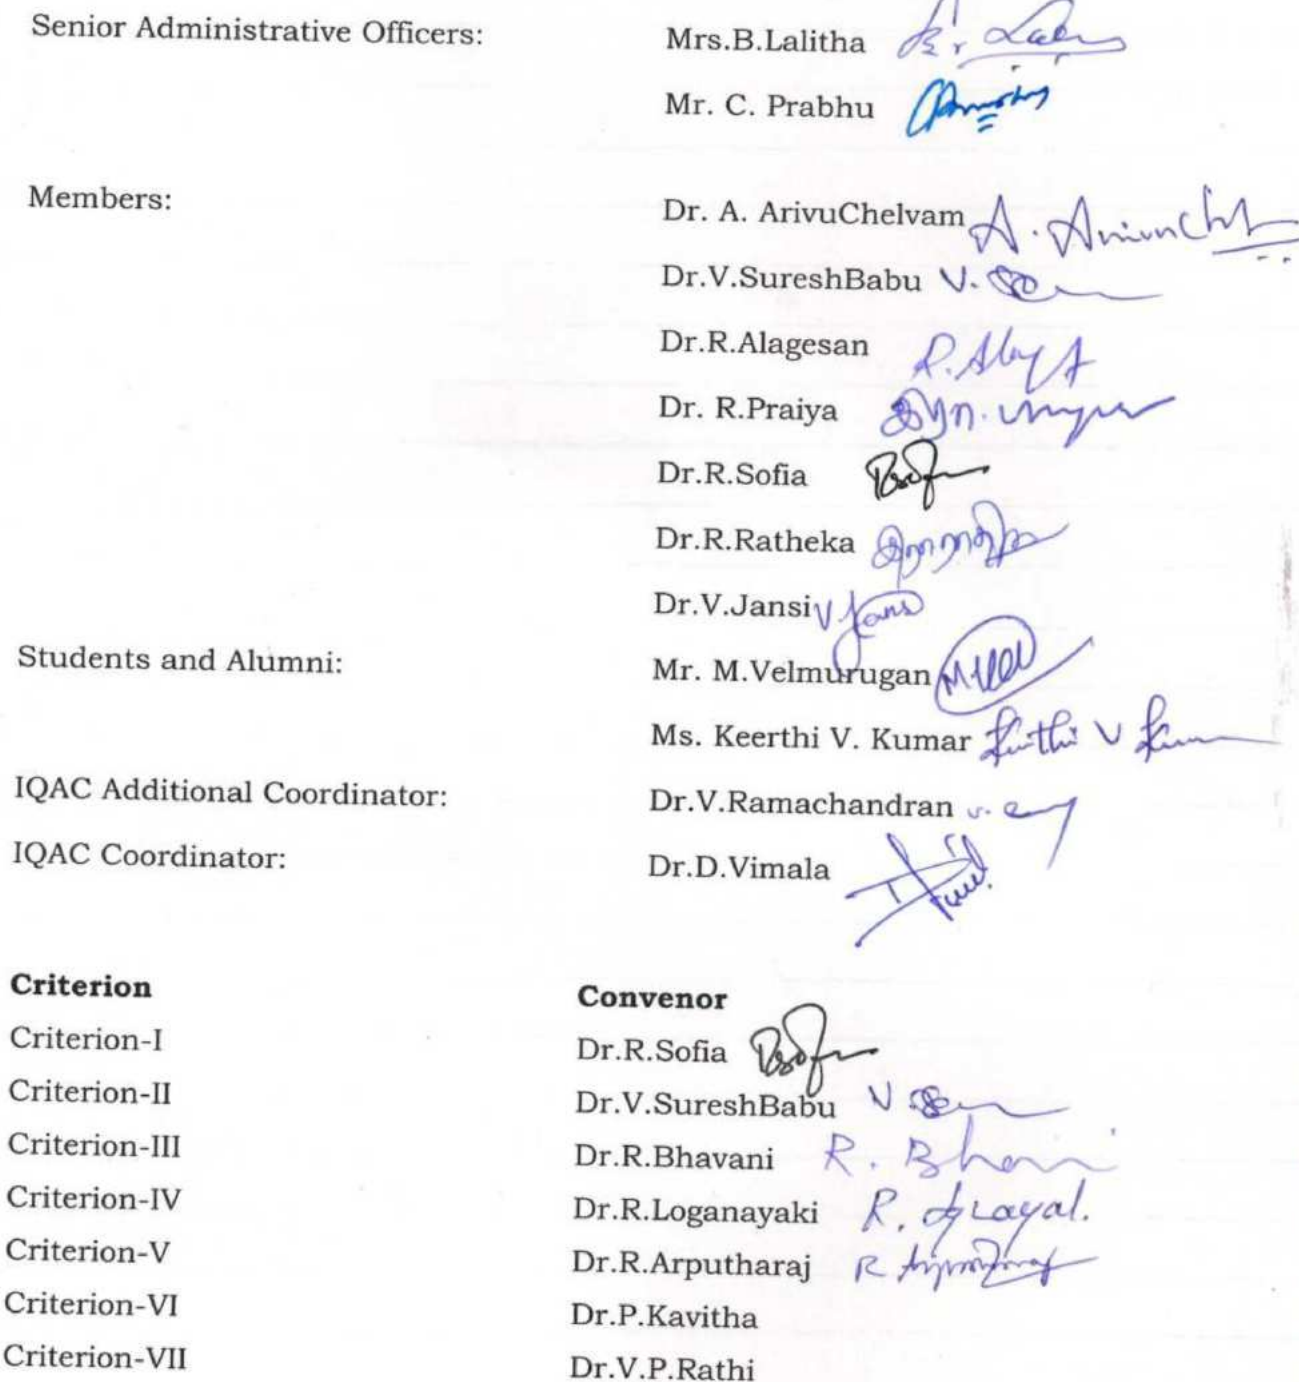 Senior Administrative Officers: Mrs.B.Lalitha
Mr. C. Prabhu
Members: Dr. A. ArivuChelvam A. Arivuchel
Dr.V.SureshBabu V.
Dr.R.Alagesan R.
Dr. R.Praiya
Dr.R.Sofia
Dr.R.Ratheka
Dr.V.Jansi V Jans
Students and Alumni: Mr. M.Velmurugan M.Vel
Ms. Keerthi V. Kumar Keerthi V Kum
IQAC Additional Coordinator: Dr.V.Ramachandran V.
IQAC Coordinator: Dr.D.Vimala
Criterion Convenor
Criterion-I Dr.R.Sofia
Criterion-II Dr.V.SureshBabu V
Criterion-III Dr.R.Bhavani R. Bhavani
Criterion-IV Dr.R.Loganayaki R.
Criterion-V Dr.R.Arputharaj R Arputharaj
Criterion-VI Dr.P.Kavitha
Criterion-VII Dr.V.P.Rathi